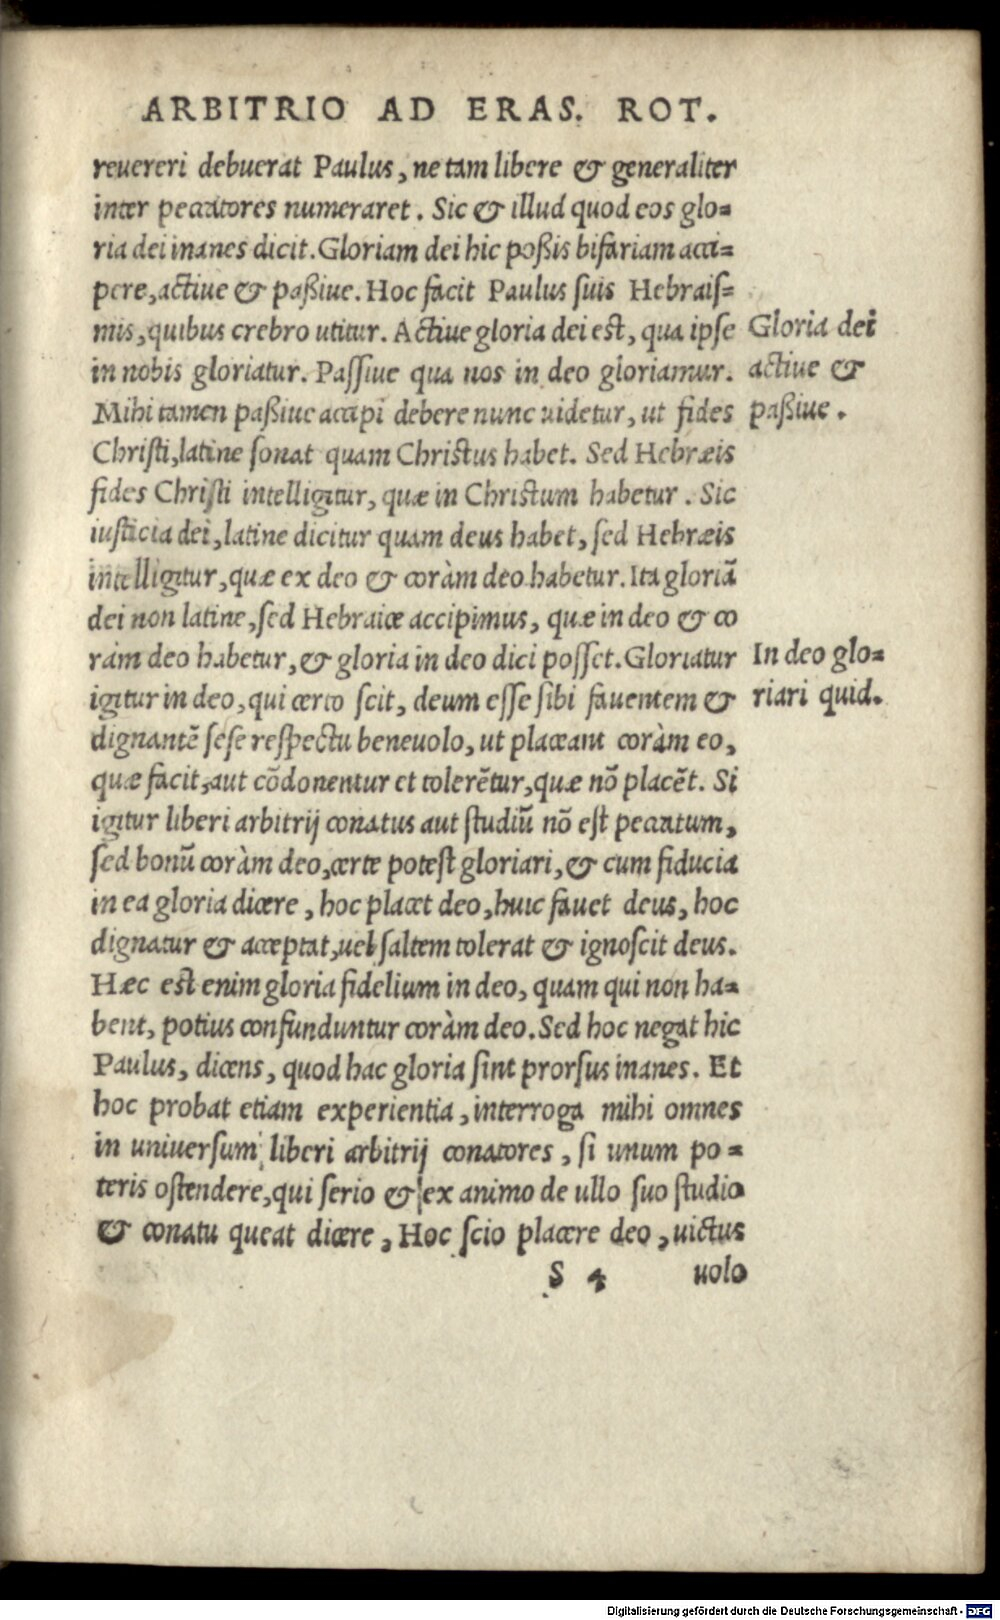 ARBITRIO AD ERAS. ROT.
reuereri debuerat Paulus, ne tam libere & generaliter
inter peccatores numeraret. Sic & illud quod eos glo=
ria dei inanes dicit. Gloriam dei hic poßis bifariam acci=
pere, actiue & paßiue. Hoc facit Paulus suis Hebrais=
mis, quibus crebro utitur. Actiue gloria dei est, qua ipse
in nobis gloriatur. Passiue qua nos in deo gloriamur.
Mihi tamen paßiue accipi debere nunc uidetur, ut fides
Christi, latine sonat quam Christus habet. Sed Hebræis
fides Christi intelligitur, quæ in Christum habetur. Sic
iusticia dei, latine dicitur quam deus habet, sed Hebræis
intelligitur, quæ ex deo & coràm deo habetur. Ita gloriã
dei non latine, sed Hebraice accipimus, quæ in deo & co
ràm deo habetur, & gloria in deo dici posset. Gloriatur
igitur in deo, qui certo scit, deum esse sibi fauentem &
dignantẽ sese respectu beneuolo, ut placeant coràm eo,
quæ facit, aut cõdonentur et tolerẽtur, quæ nõ placẽt. Si
igitur liberi arbitrij conatus aut studiũ nõ est peccatum,
sed bonũ coràm deo, certe potest gloriari, & cum fiducia
in ea gloria dicere, hoc placet deo, huic fauet deus, hoc
dignatur & acceptat, uel saltem tolerat & ignoscit deus.
Hæc est enim gloria fidelium in deo, quam qui non ha=
bent, potius confunduntur coràm deo. Sed hoc negat hic
Paulus, dicens, quod hac gloria sint prorsus inanes. Et
hoc probat etiam experientia, interroga mihi omnes
in uniuersum liberi arbitrij conatores, si unum po=
teris ostendere, qui serio & ex animo de ullo suo studio
& conatu queat dicere, Hoc scio placere deo, uictus
S 4 uolo
Gloria dei
actiue &
paßiue.
In deo glo=
riari quid.
Digitalisierung gefördert durch die Deutsche Forschungsgemeinschaft - DFG